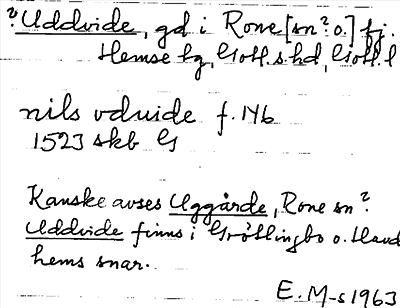 ? Uddvide, gd i Rone [sn? o.] fj.
Hemse tg, Gotl.s hd, Gotl. l
nils vduide f. 14b
1523 skb G
Kanske avses Uggårde, Rone sn?
Uddvide finns i Grötlingbo o. Havd
hems snar.
E. M-s 1963